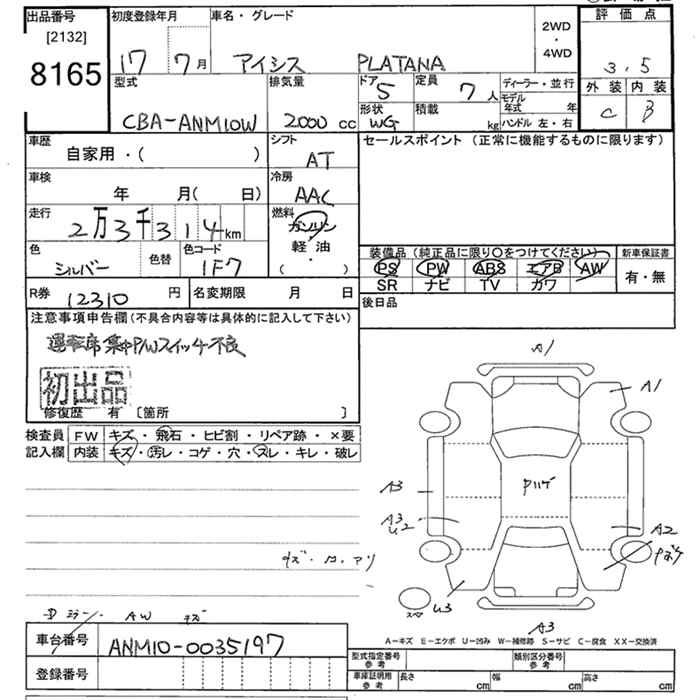 出品番号
[2132]
8165
初度登録年月
17 7月
車名・グレード
アイシス PLATANA
2WD
・
4WD
評価点
3.5
外装 内装
C B
型式
CBA-ANM10W
排気量
2000 cc
ドア
5
定員
7人
形状
WG
積載
kg
ディーラー・並行
モデル
年式 年
ハンドル 左・右
車歴
自家用・( )
シフト
AT
セールスポイント (正常に機能するものに限ります)
車検
年 月( 日)
冷房
AAC
走行
2万3千314km
燃料
ガソリン
軽・油
( ・ )
色
シルバー
色替
色コード
1F7
装備品 (純正品に限り〇をつけてください)
PS PW ABS エアB AW
SR ナビ TV カワ
新車保証書
有・無
R券 12310 円
名変期限 月 日
後日品
注意事項申告欄(不具合内容等は具体的に記入して下さい)
運転席集中P/Wスイッチ不良
初出品
修復歴 有 [箇所 ]
検査員
記入欄
FW キズ・飛石・ヒビ割・リペア跡・×要
内装 キズ・汚レ・コゲ・穴・スレ・キレ・破レ
A1
A1
A3
A3
U2
Pハゲ
A2
Pボケ
U3
A3
AW キズ
A-キズ E-エクボ U-凹み W-補修跡 S-サビ C-腐食 XX-交換済
車台番号 ANM10-0035197
登録番号
型式指定番号
参考
類別区分番号
参考
車庫証明用
参考
長さ cm 幅 cm 高さ cm